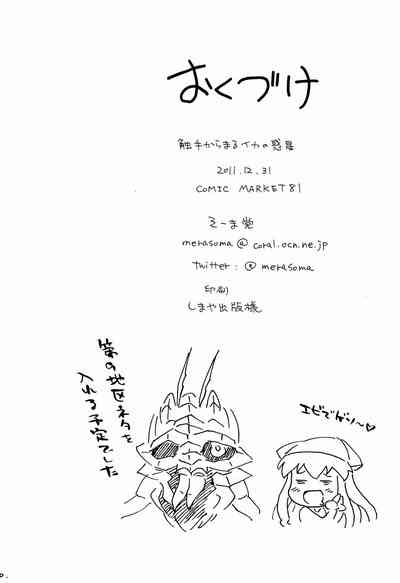 おくづけ
触手からまるイカの惑星
2011.12.31
COMIC MARKET 81
そーま堂
merasoma@coral.ocn.ne.jp
twitter: @merasoma
印刷
しまや出版様
第9地区ネタを
入れる予定でした
エビでゲソ〜♡